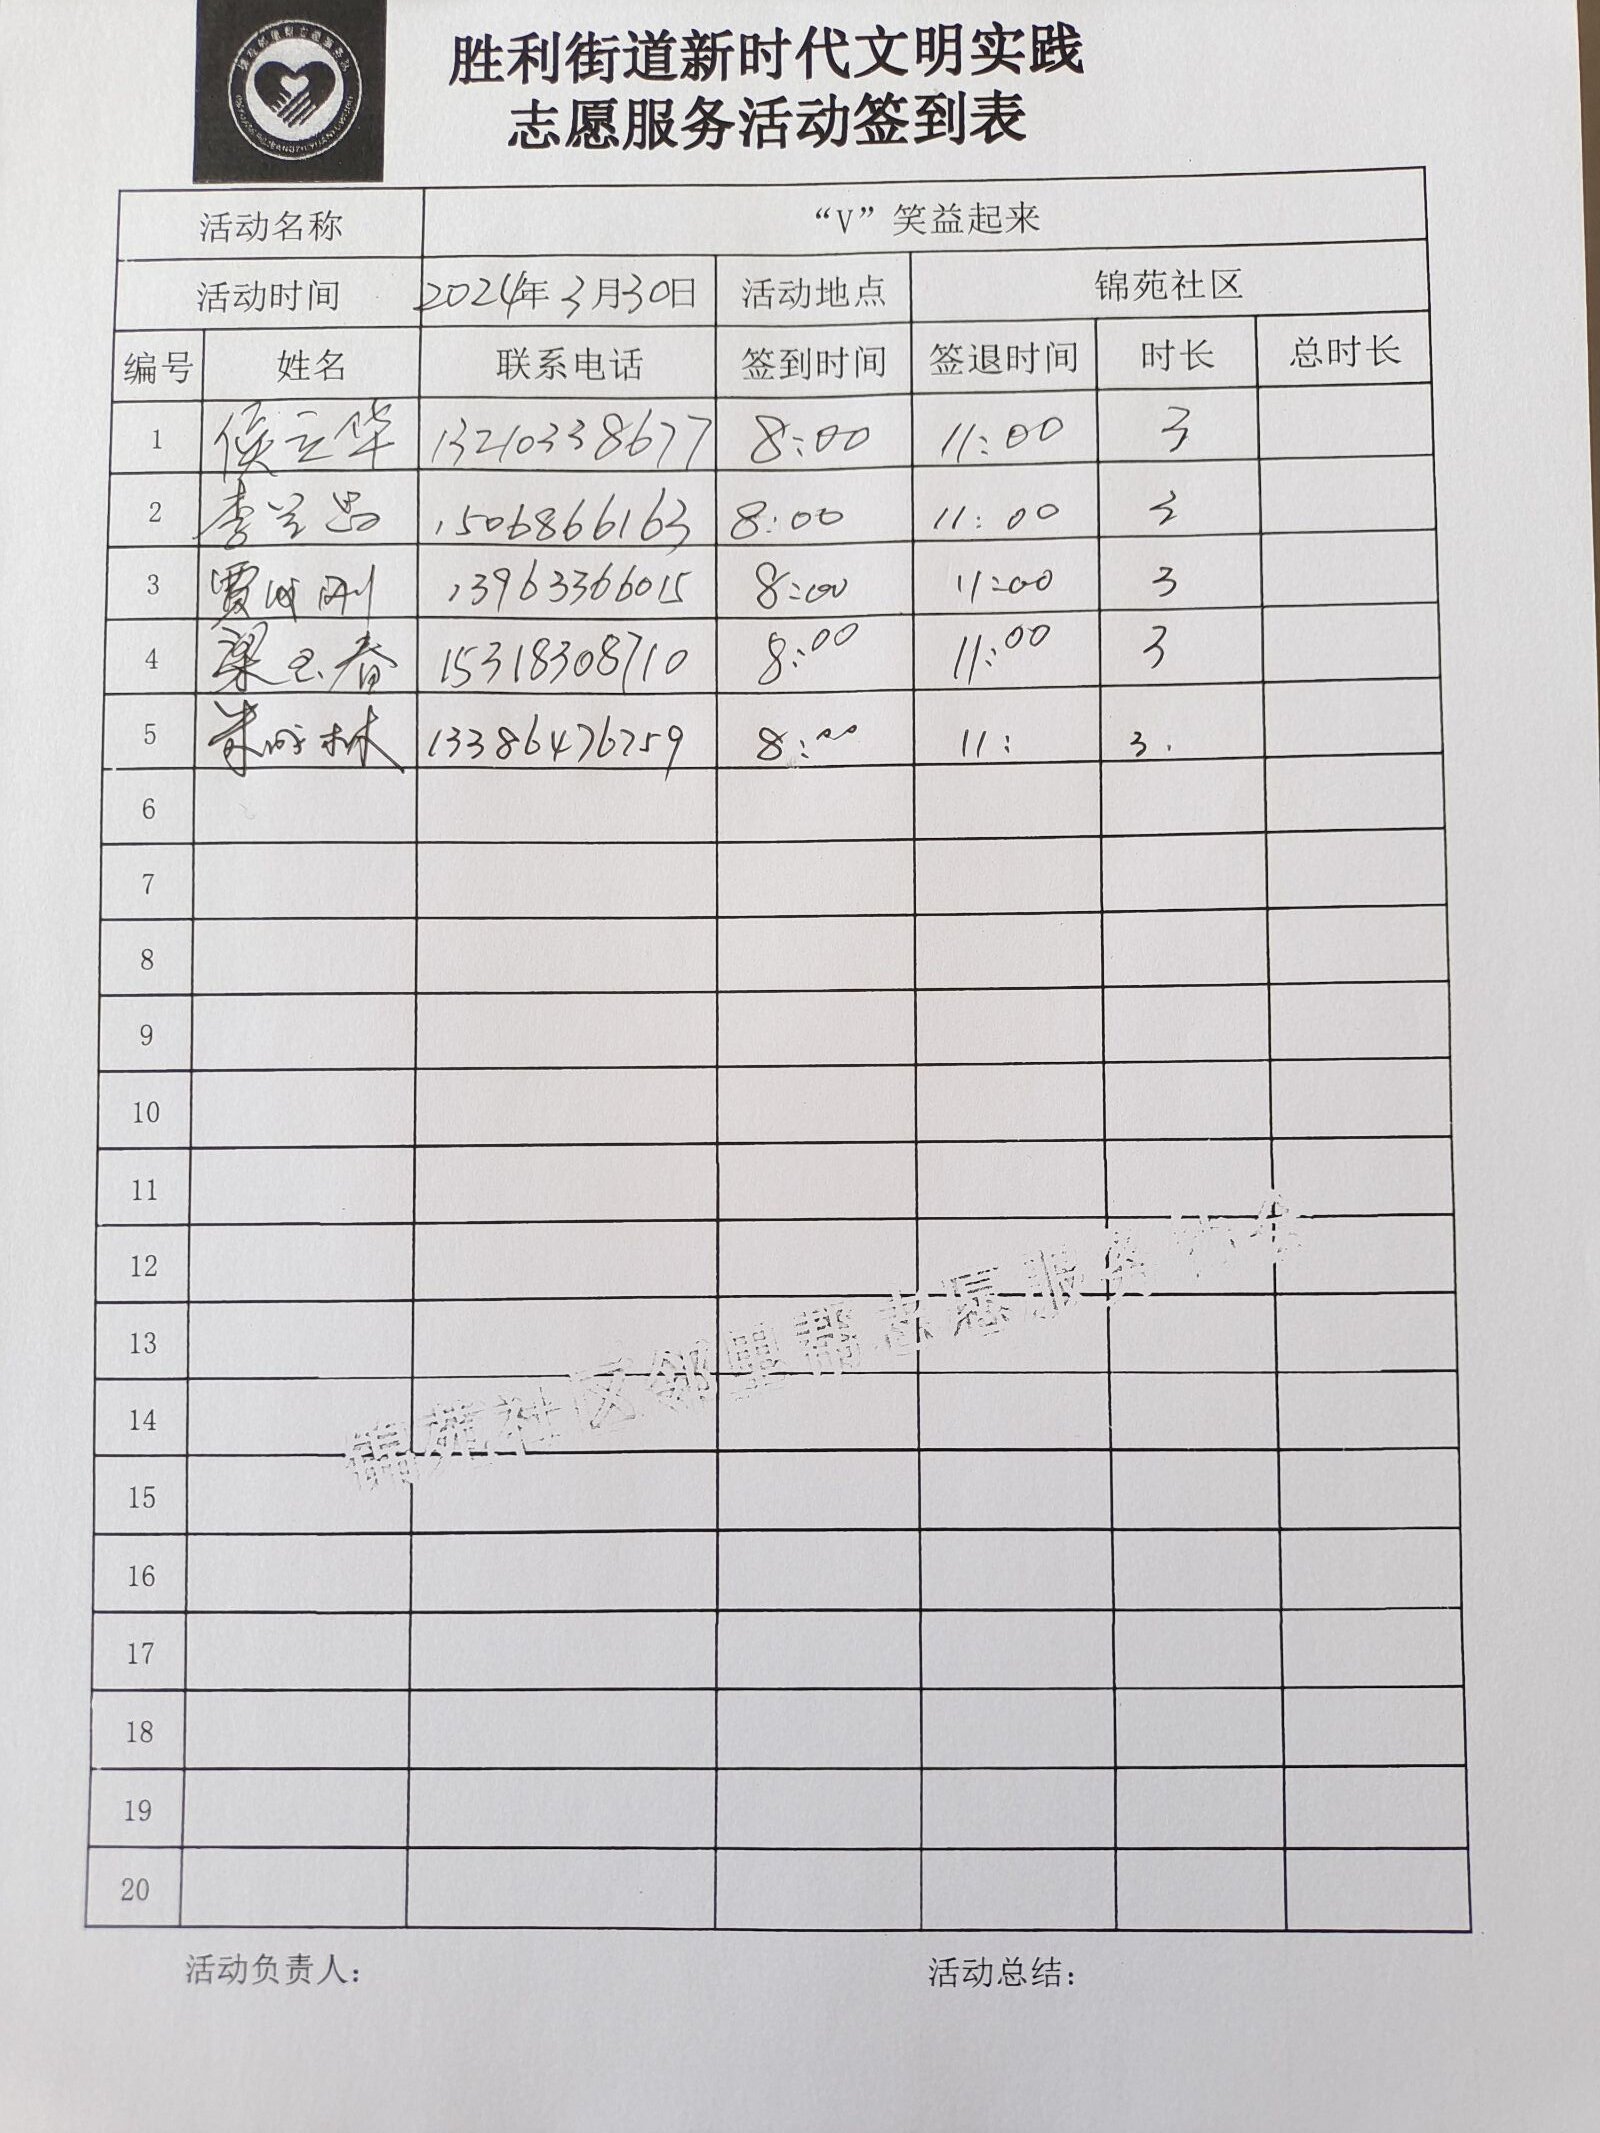 胜利街道新时代文明实践
志愿服务活动签到表
活动名称 “V”笑益起来
活动时间 2024年3月30日 活动地点 锦苑社区
编号 姓名 联系电话 签到时间 签退时间 时长 总时长
1 侯立华 13210338677 8:00 11:00 3
2 李兰 1506866163 8:00 11:00 3
3 贾 刚 13963366015 8:00 11:00 3
4 梁玉春 15318308710 8:00 11:00 3
5 林 13386476759 8:00 11: 3.
6
7
8
9
10
11
12
13
14
15
16
17
18
19
20
锦苑社区邻里帮志愿服务
活动负责人: 活动总结: